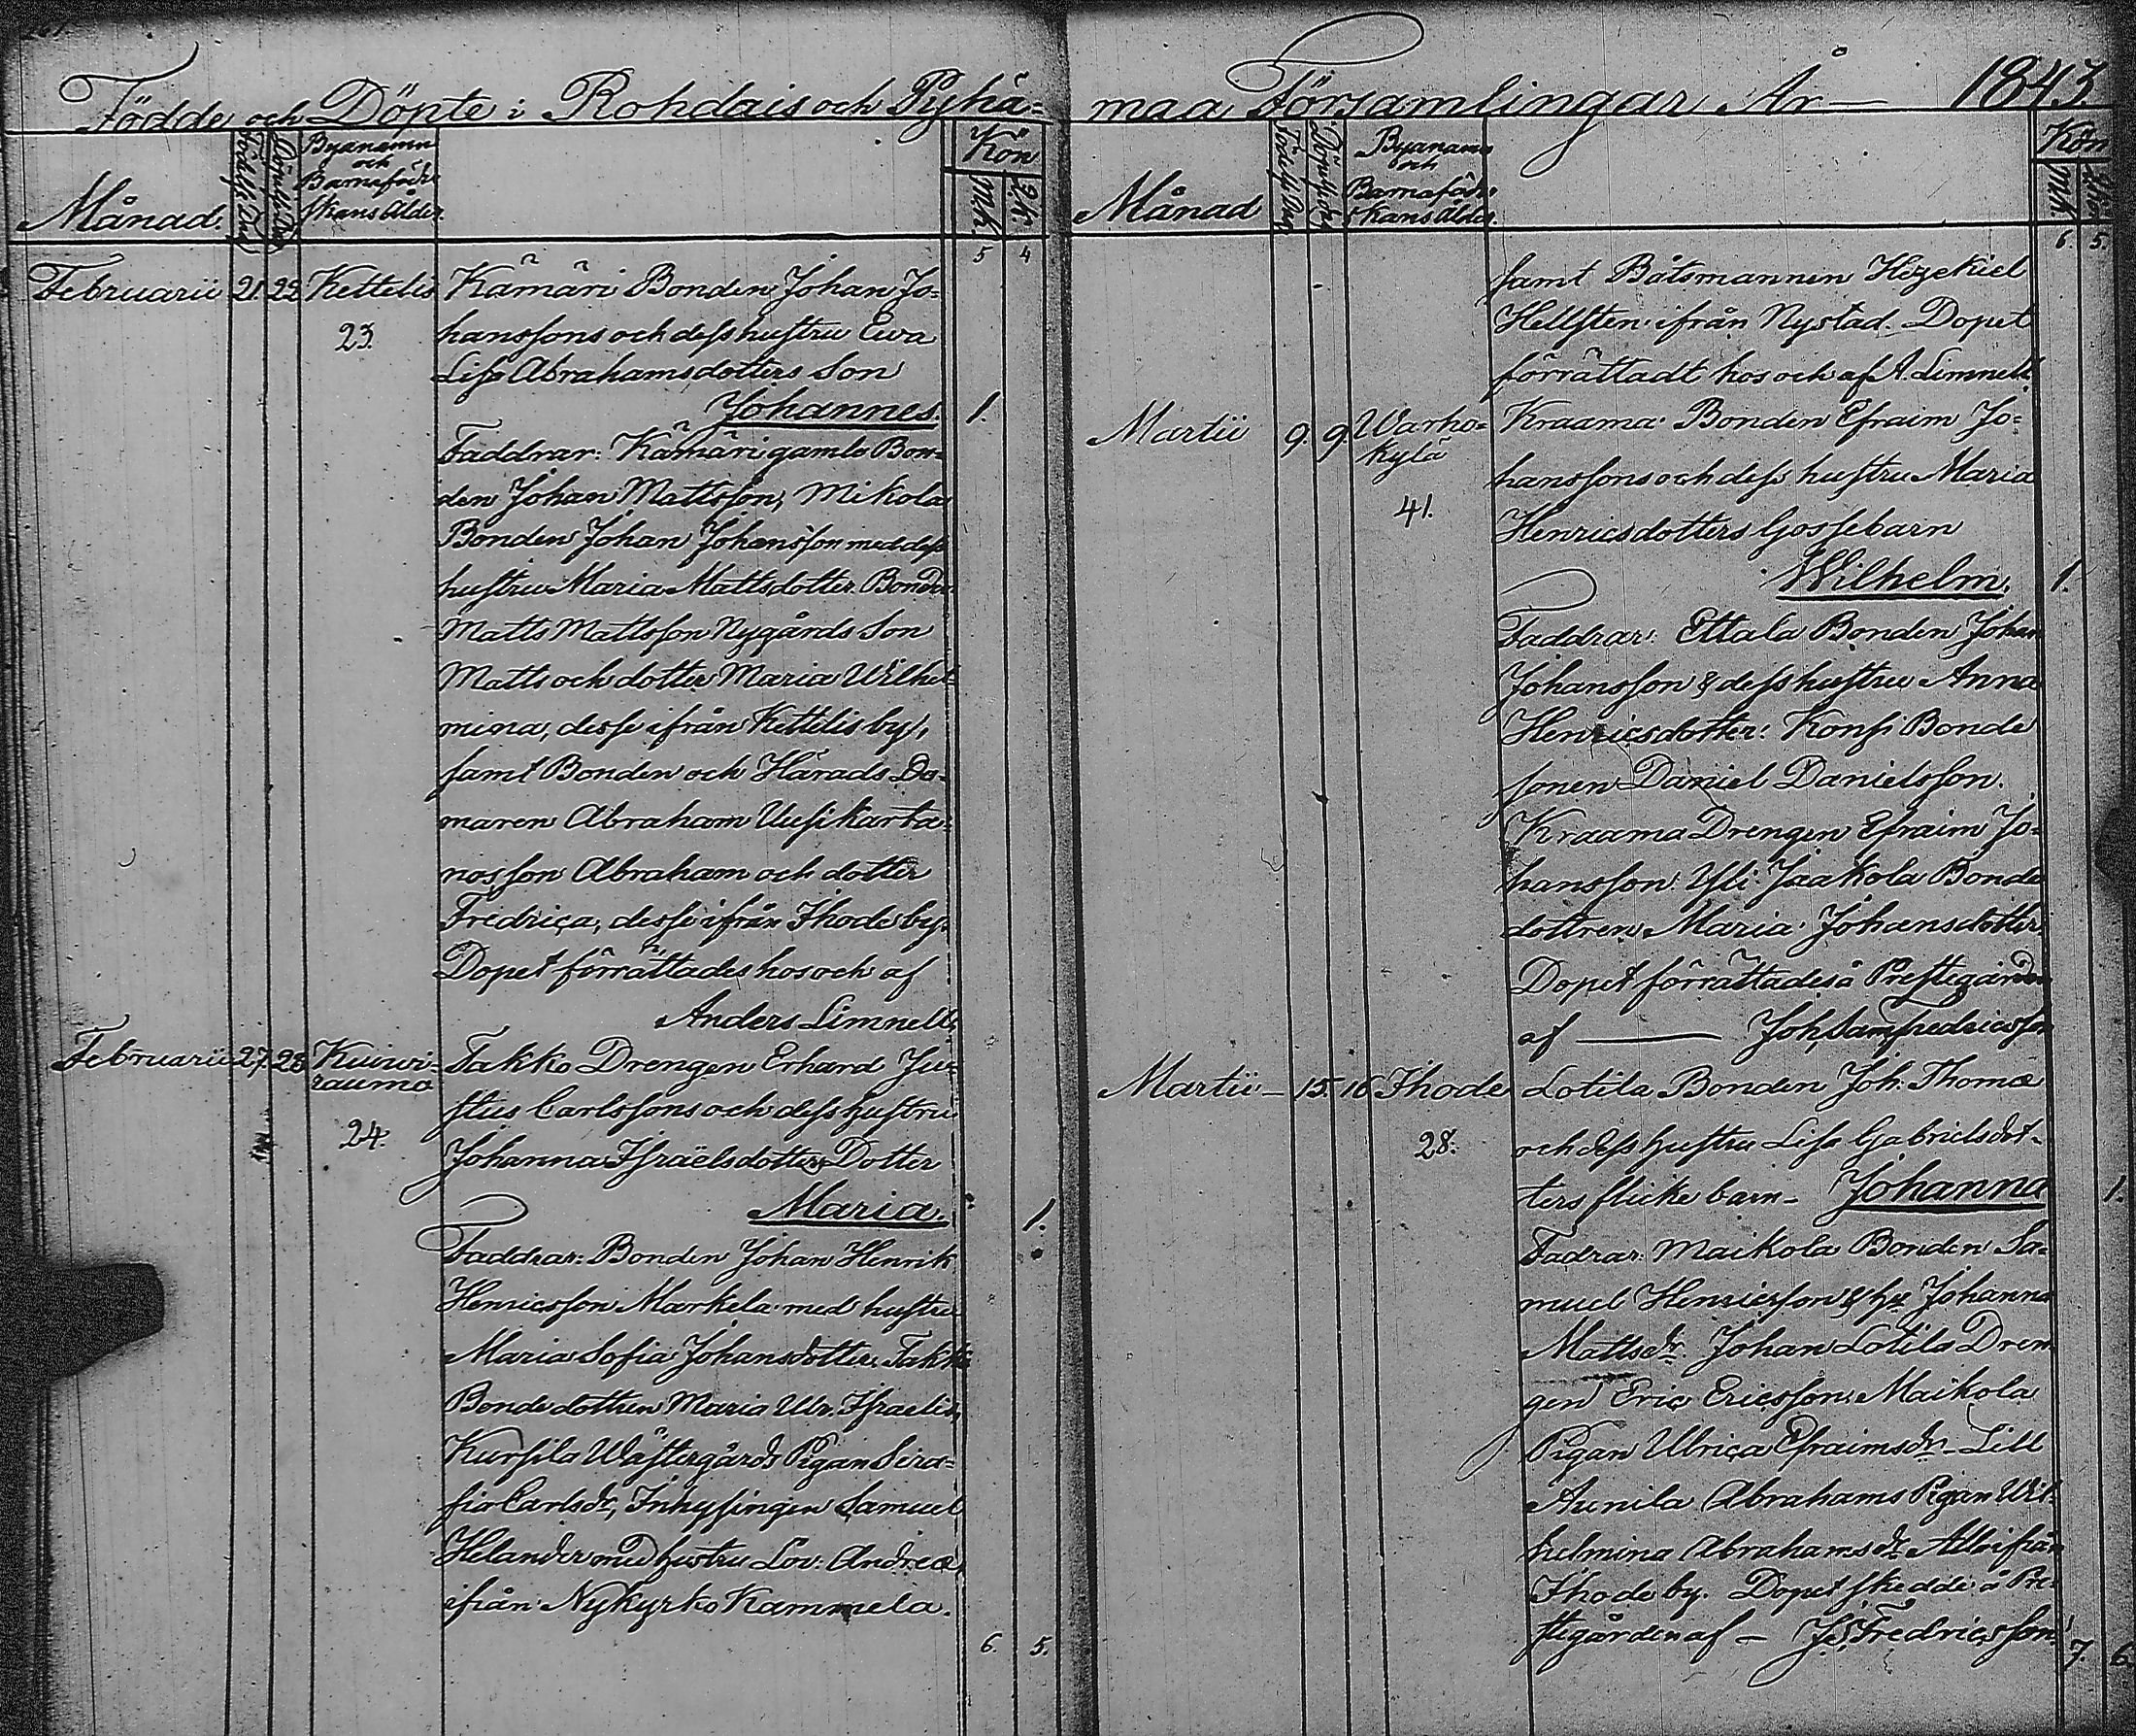 Födde och Döpte i Rohdais och Pyhä-
Månad.
Födelse Dag
Döpelse Dag
Byanamn
och
Barnaföder-
skans ålder
Kön
Mk.
Qk.
5 4
Februarii 21. 22 Kettelis
23.
Kämäri Bonden Johan Jo-
hanssons och dess hustru Ewa
Lisa Abrahamsdotters Son
Johannes. 1.
Faddrar: Kämäri gamle Bon-
den Johan Mattsson, Mikola
Bonden Johan Johansson med dess
hustru Maria Mattsdotter. Bonden
Matts Mattsson Nygårds Son
Matts och dotter Maria Wilhel-
mina, desse ifrån Kettelis by,
samt Bonden och Härads Do-
maren Abraham Uusikarta-
nos son Abraham och dotter
Fredrica, desse ifrån Ihode by.
Dopet förrättades hos och af
Anders Limnell.
Februarii 27. 28 Kuiwi-
rauma
24.
Takko Drengen Erhard Ju-
stus Carlssons och dess hustru
Johanna Israëlsdotters Dotter
Maria. 1.
Faddrar: Bonden Johan Henrik
Henricsson Markela med hustru
Maria Sofia Johansdotter. Takko
Bondedottren Maria Ulr. Israelis,
Kursila Wästergårds Pigan Sera-
fia Carlsdr, Inhysingen Samuel
Helander med hustru Lov. Andreæ
ifrån Nykyrko Kammela.
6. 5.
maa Församlingar År — 1843.
Månad
Födelse Dag
Döpelse Dag
Byanamn
och
Barnaföder-
skans ålder
Kön
Mk.
6. 5.
samt Båtsmannen Hezekiel
Hellsten ifrån Nystad. Dopet
förrättadt hos och af A. Limnell.
Martii 9. 9. Warho-
kylä
41.
Kraama Bonden Efraim Jo-
hanssons och dess hustru Maria
Henricsdotters Gossebarn
Wilhelm. 1.
Faddrar: Ettala Bonden Johan
Johansson & dess hustru Anna
Henricsdotter. Konsi Bonde
sonen Daniel Danielsson.
Kraama Drengen Efraim Jo-
hansson. Yli Jaakola Bonde
dottren Maria Johansdotter.
Dopet förrättades å Prestegården
af — Joh. Sam. Fredricsson
Martii — 15. 16 Ihode
28.
Lotila Bonden Joh. Thomæ
och dess hustru Lisa Gabrielsdot-
ters flicke barn — Johanna 1.
Fadrar. Maikola Bonden Sa-
muel Henricsson & hu Johanna
Mattsdr. Johan Lotila Dren
gen Eric Ericsson. Maikola
Pigan Ulrica Efraimsdr. Lill
Aunila Abrahams Pigan Wil-
helmina Abrahamsdr. Alle ifrån
Ihode by. Dopet skedde å Pre-
stegården af — J. S. Fredricsson.
7. 6.